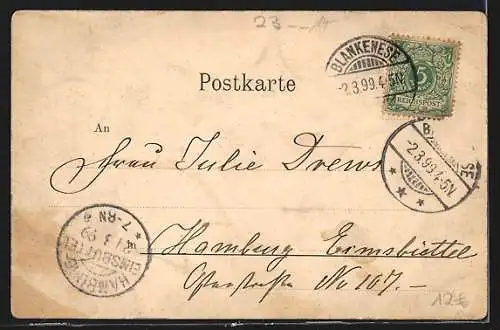 23
BLANKENESE
-2.3.99.4-5N
5
REICHSPOST
Postkarte
-2.3.99.4-5N
An
Frau Julie Drews
HAMBURG
EIMSBÜTTEL
3 99
7-8N
Hamburg Eimsbüttel
Osterstraße No 107.
12€